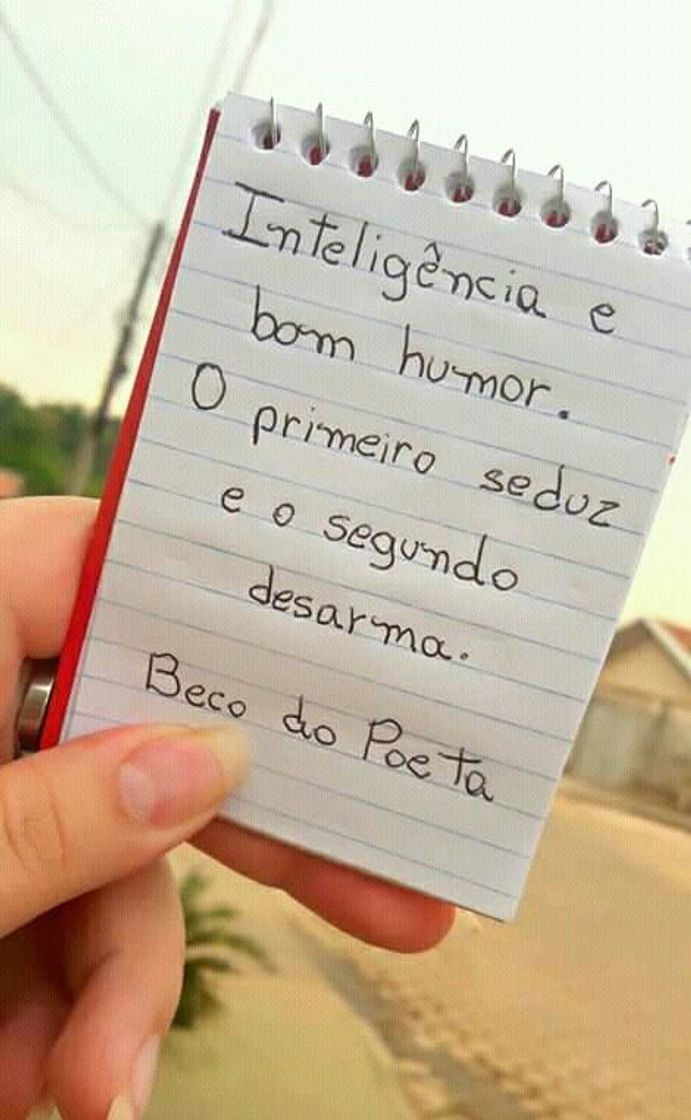 Inteligência e
bom humor.
O primeiro seduz
e o segundo
desarma.
Beco do Poeta